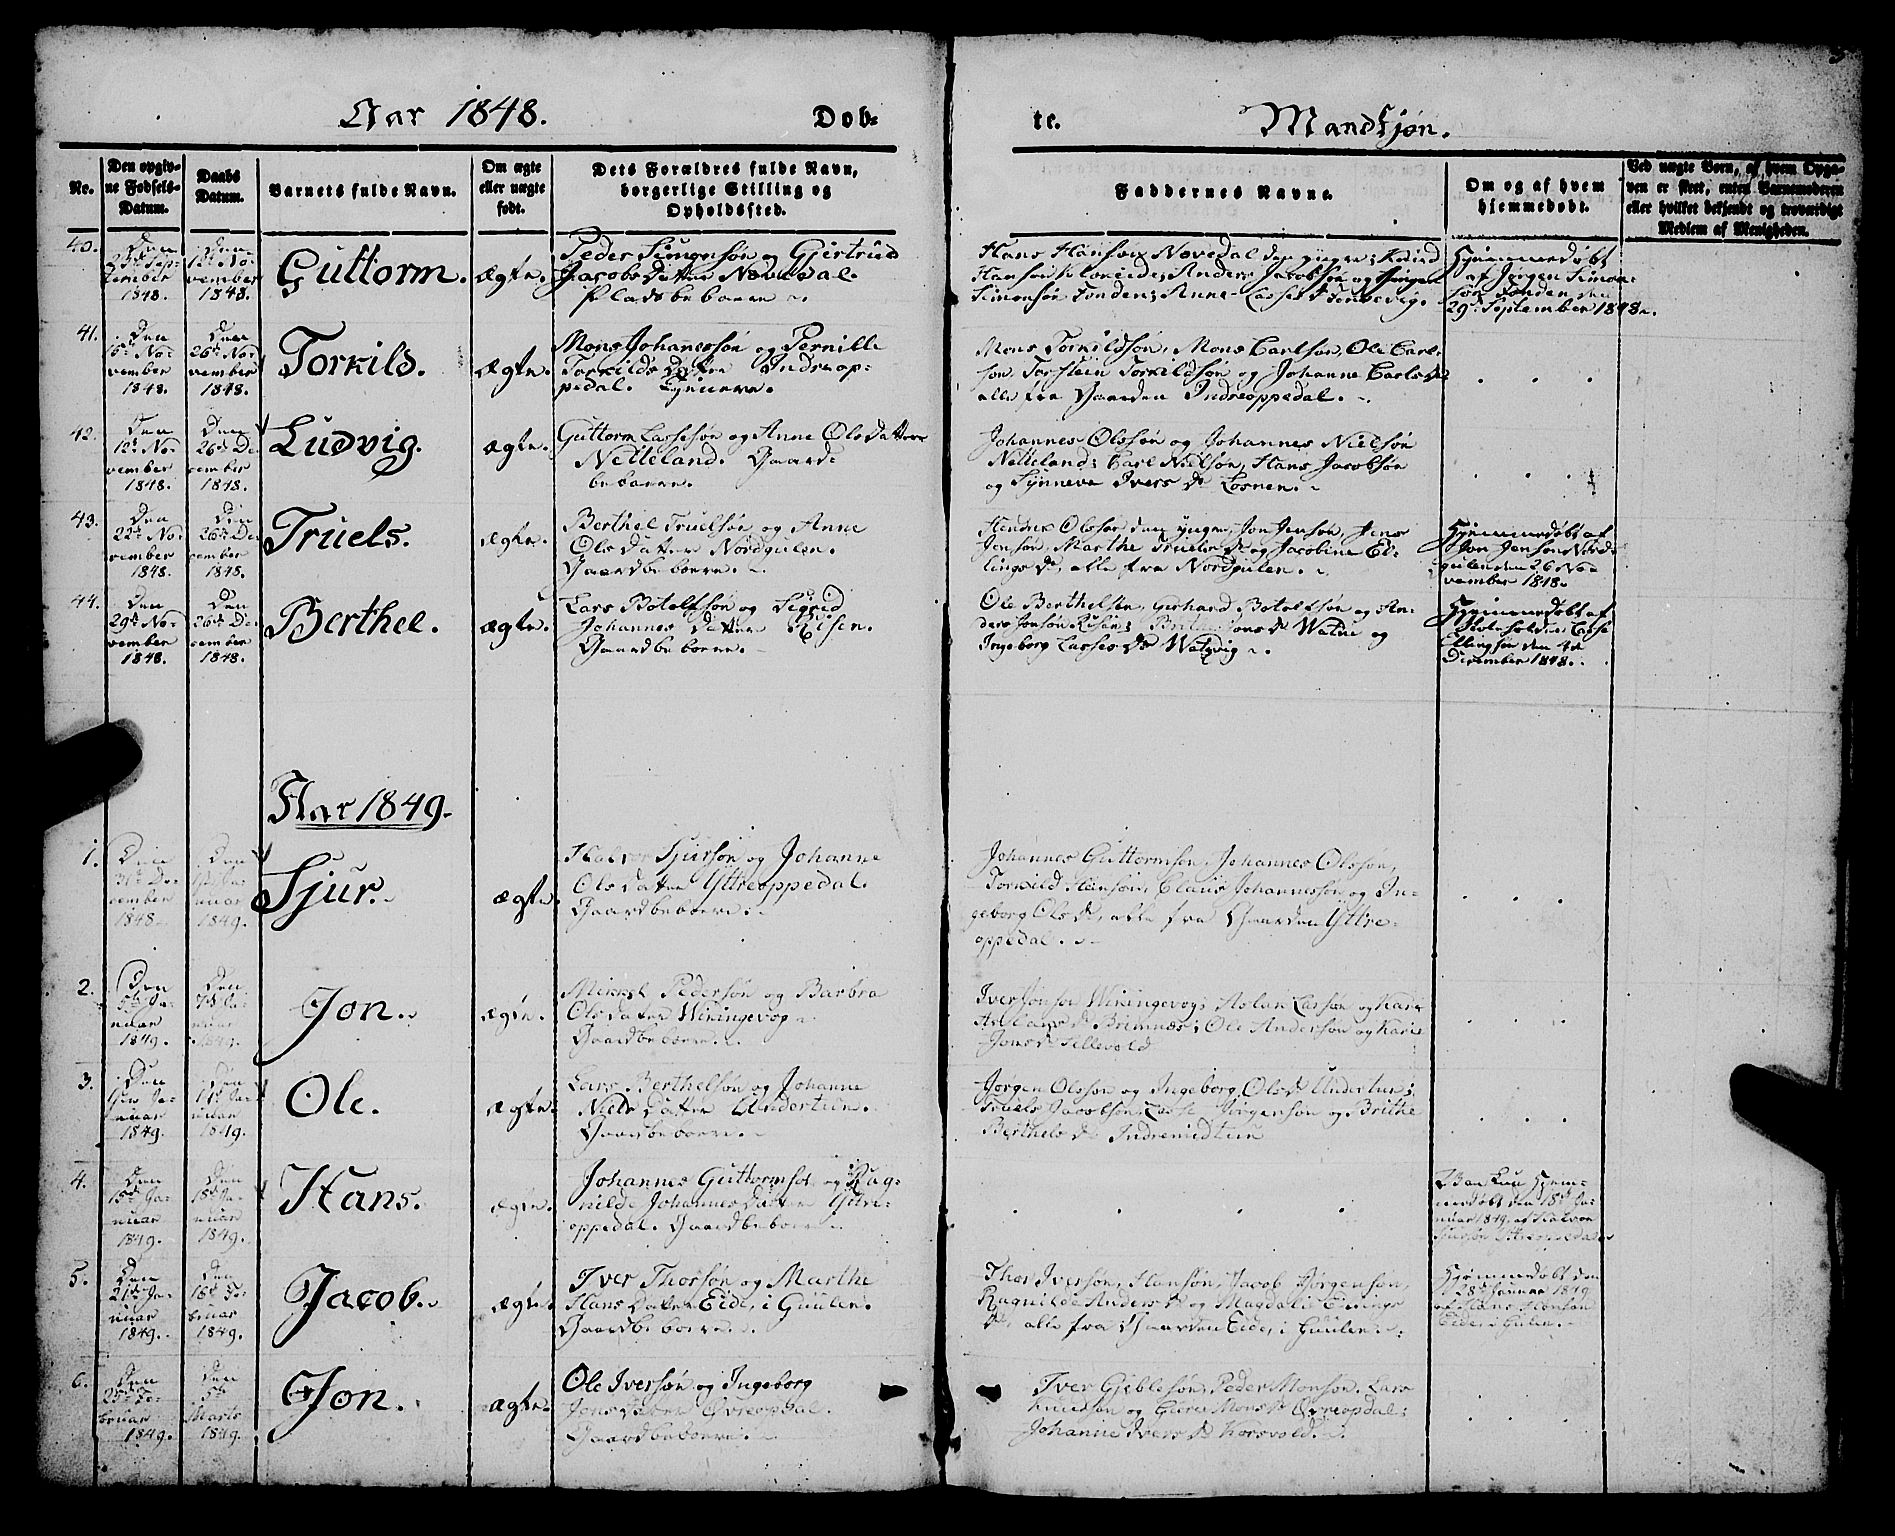 Aar 1848.
Døb-
te.
Mandkjøn.
No.
Den opgiv-
ne Fødsels-
Datum.
Daabs
Datum.
Barnets fulde Navn.
Om ægte
eller uægte
født.
Dets Forældres fulde Navn,
borgerlige Stilling og
Opholdssted.
Faddernes Navne.
Om og af hvem
hjemmedøbt.
Ved uægte Børn, af hvem Opga-
ven er skeet, enten Barnemoderen
eller hvilket bekjendt og troværdigt
Medlem af Menigheden.
40.
Den
Sep-
tember
1848.
Den
No-
vember
1848.
Guttorm.
Ægte.
Peder Simonsøn og Gjertrud
Jacobsdatter Nævedal.
Pladsbeboere.
Hans Hansøn Nævedal den yngre; Knud
Hansøn; Anders Jacobsøn og Jørgen
Simonsøn Fonden; Anne Lasses
Hjemmedøbt
af Jørgen Simon-
søn Fonden den
29de September 1848.
41.
Den
No-
vember
1848.
Den
26de No-
vember
1848.
Torkild.
Ægte.
Mons Johanessøn og Pernille
Torkildsdatter Indreop-
pedal.
Mons Torkildsøn, Mons Carlsøn, Ole Carl-
søn, Torstein Torkildsøn og Johanne Carlsdr
alle fra Gaarden Indreoppedal.
42.
Den
12te No-
vember
1848.
Den
26de De-
cember
1848.
Ludvig.
ægte.
Guttorm Lassesøn og Anne Olsdatter
Netteland. Gaard-
beboere.
Johannes Olssøn og Johannes Nielsøn
Netteland; Carl Nielsøn, Hans Jacobsøn
og Synneva Ivers dr Losnen.
43.
Den
22de No-
vember
1848.
Den
26de De-
cember
1848.
Truels.
ægte.
Berthel Truelsøn og Anne
Olsdatter Nordgulen.
Gaardbeboere.
Hendrik Olssøn den yngre, Jon Jensøn, Jens
Jensøn, Marthe Truels dr og Jacobine El-
lings dr, alle fra Nordgulen.
Hjemmedøbt af
Jon Jensøn Nord-
gulen den 26 No-
vember 1848.
44.
Den
29de No-
vember
1848.
Den
26de De-
cember
1848.
Berthel.
ægte.
Lars Botolfsøn og Sigrid
Johannesdatter Risen.
Gaardbeboere.
Ole Berthelsøn, Gerhard Botolfsøn og An-
ders Jonsøn Risen; Brithe Jons dr Watne og
Ingeborg Lasses dr
Hjemmedøbt af
Lasse
Ellingsøn den 4de
December 1848.
Aar 1849.
1.
Den
31te De-
cember
1848.
Den
Ja-
nuar
1849.
Sjur.
ægte.
Halvor Sjursøn og Johanne
Olsdatter Yttreoppedal.
Gaardbeboere.
Johannes Guttormsøn, Johannes Olssøn,
Torkild Hansøn, Claus Johannessøn og In-
geborg Ols dr, alle fra Gaarden Yttre-
oppedal.
2.
Den
5te Ja-
nuar
1849.
Den
Ja-
nuar
1849.
Jon.
ægte.
Mikkel Pedersøn og Barbra
Olsdatter Wiringevog
Gaardbeboere.
Iver Jonsøn Wiringevog; Aslak Lassøn og Kari
Aslaks dr Brimnæs; Ole Andersøn og Kari
Jons dr Sellevold
3.
Den
Ja-
nuar
1849.
Den
14de Ja-
nuar
1849.
Ole.
ægte.
Lars Berthelsøn og Johanne
Nielsdatter Undertun.
Gaardbeboere.
Jørgen Olssøn og Ingeborg Ols dr Undertun;
Truels Jacobsøn, Lasse Jørgensøn og Brithe
Berthels dr Indremidtun
4.
Den
15de Ja-
nuar
1849.
Den
18de Ja-
nuar
1849.
Hans.
ægte.
Johannes Guttormsøn og Rag-
nilde Johannesdatter Yttre-
oppedal. Gaardbeboere
Blev kun hjem-
medøbt den 18de Ja-
nuar 1849 af Halvor
Sjursøn Yttreoppedal.
5.
Den
21de Ja-
nuar
1849.
Den
18de Fe-
bruar
1849.
Jacob.
ægte.
Iver Thorsøn og Marthe
Hansdatter Eide, i Guulen.
Gaardbeboere.
Thor Iversøn, Hansøn, Jacob Jørgensøn,
Ragnilde Anders dr og Magdali Ellings
dr, alle fra Gaarden Eide, i Guulen.
Hjemmedøbt den
28de Januar 1849
af Hans Hansøn
Eide, i Gulen.
6.
Den
25de Fe-
bruar
1849.
Den
5te
Marts
1849.
Jon.
ægte.
Ole Iversøn og Ingeborg
Jonsdatter Øvreopdal.
Gaardbeboere.
Iver Gjeblesøn, Peder Monsøn, Lars
Knudsøn og Monsdr Øvreopdal;
Johanne Ivers dr Korsvold.